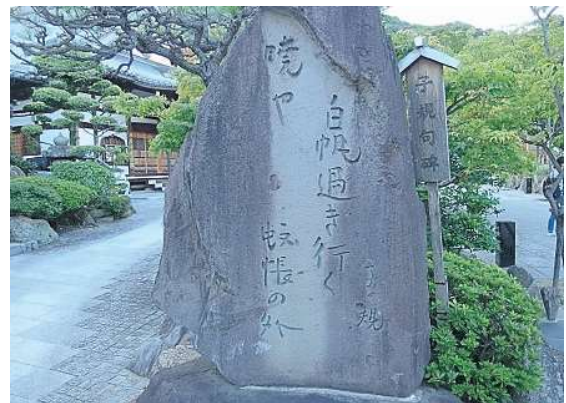 暁や
白帆過き行く
蚊帳の外
子規
子規句碑